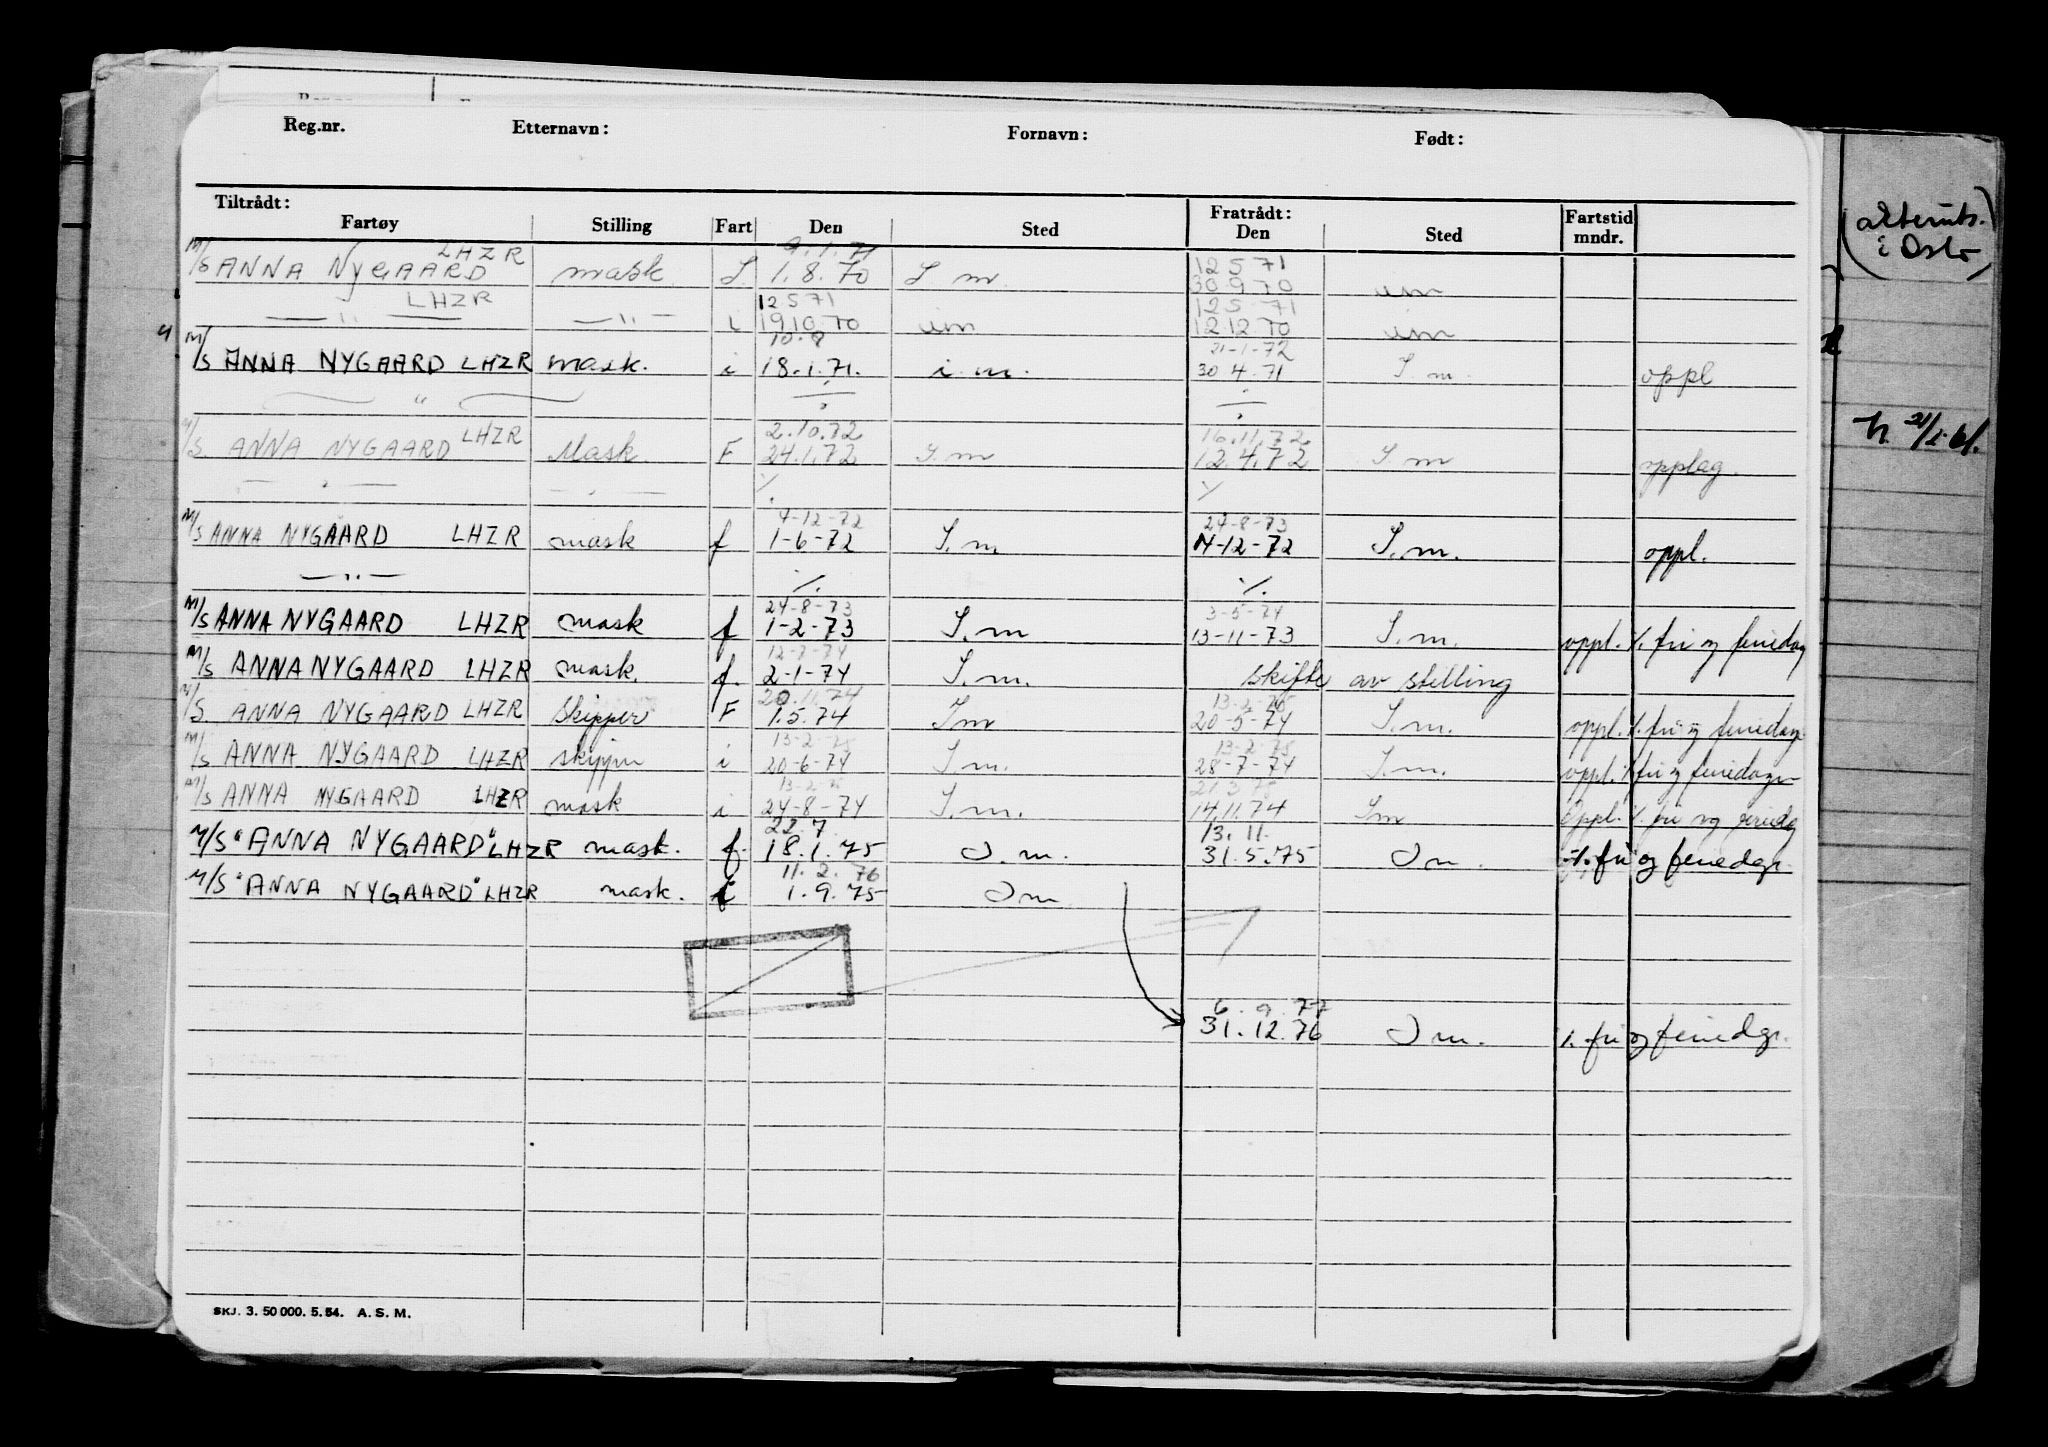 Reg.nr. Etternavn: Fornavn: Født:
Tiltrådt: Fratrådt:
Fartøy Stilling Fart Den Sted Den Sted Fartstid mndr.
LHZR 9.1.71 12 5 71
M/S ANNA NYGAARD mask S 1.8.70 S m 30 9 70 um
LHZR 12 5 71 12 5 71
— " — — " — i 19 10 70 um 12 12 70 um
10.8 21-1-72
M/S ANNA NYGAARD LHZR mask. i 18.1.71. i m. 30 4 71 S. m. oppl
"
LHZR 2.10.72 16.11.72
M/S ANNA NYGAARD Mask F 24.1.72 S.m 12.4.72 S.m opplag.
— " — — " — % %
4-12-72 24-8-73
M/S ANNA NYGAARD LHZR mask f 1-6-72 S.m 4-12-72 S.m. oppl.
— " — % %
24-8-73 3-5-74
M/S ANNA NYGAARD LHZR mask f 1-2-73 S.m 13-11-73 S.m. oppl. %. fri og feriedag
12-7-74
M/S ANNA NYGAARD LHZR mask. f. 2-1-74 S.m. skifte av stilling
20.11.74 13-2-75
M/S. ANNA NYGAARD LHZR Skipper F 1.5.74 Sm 20-5-74 S.m. oppl. %. fri og feriedag
13-2-75 13-2-75
M/S ANNA NYGAARD LHZR skipper i 20-6-74 S.m. 28-7-74 S.m. oppl. % fri og feriedager
13-2-75
M/S ANNA NYGAARD LHZR mask i 24-8-74 S.m. 14.11.74 Sm Oppl. %. fri og feriedg
22.7. 13.11.
M/S "ANNA NYGAARD" LHZR mask. f. 18.1.75 I.m. 31.5.75 Im. %. fri og feriedgr.
11.2.76
M/S "ANNA NYGAARD" LHZR mask. f 1.9.75 Im
6.9.77
31.12.76 Im. %. fri og feriedgr.
SKJ. 3. 50 000. 5. 54. A. S. M.
i Oslo)